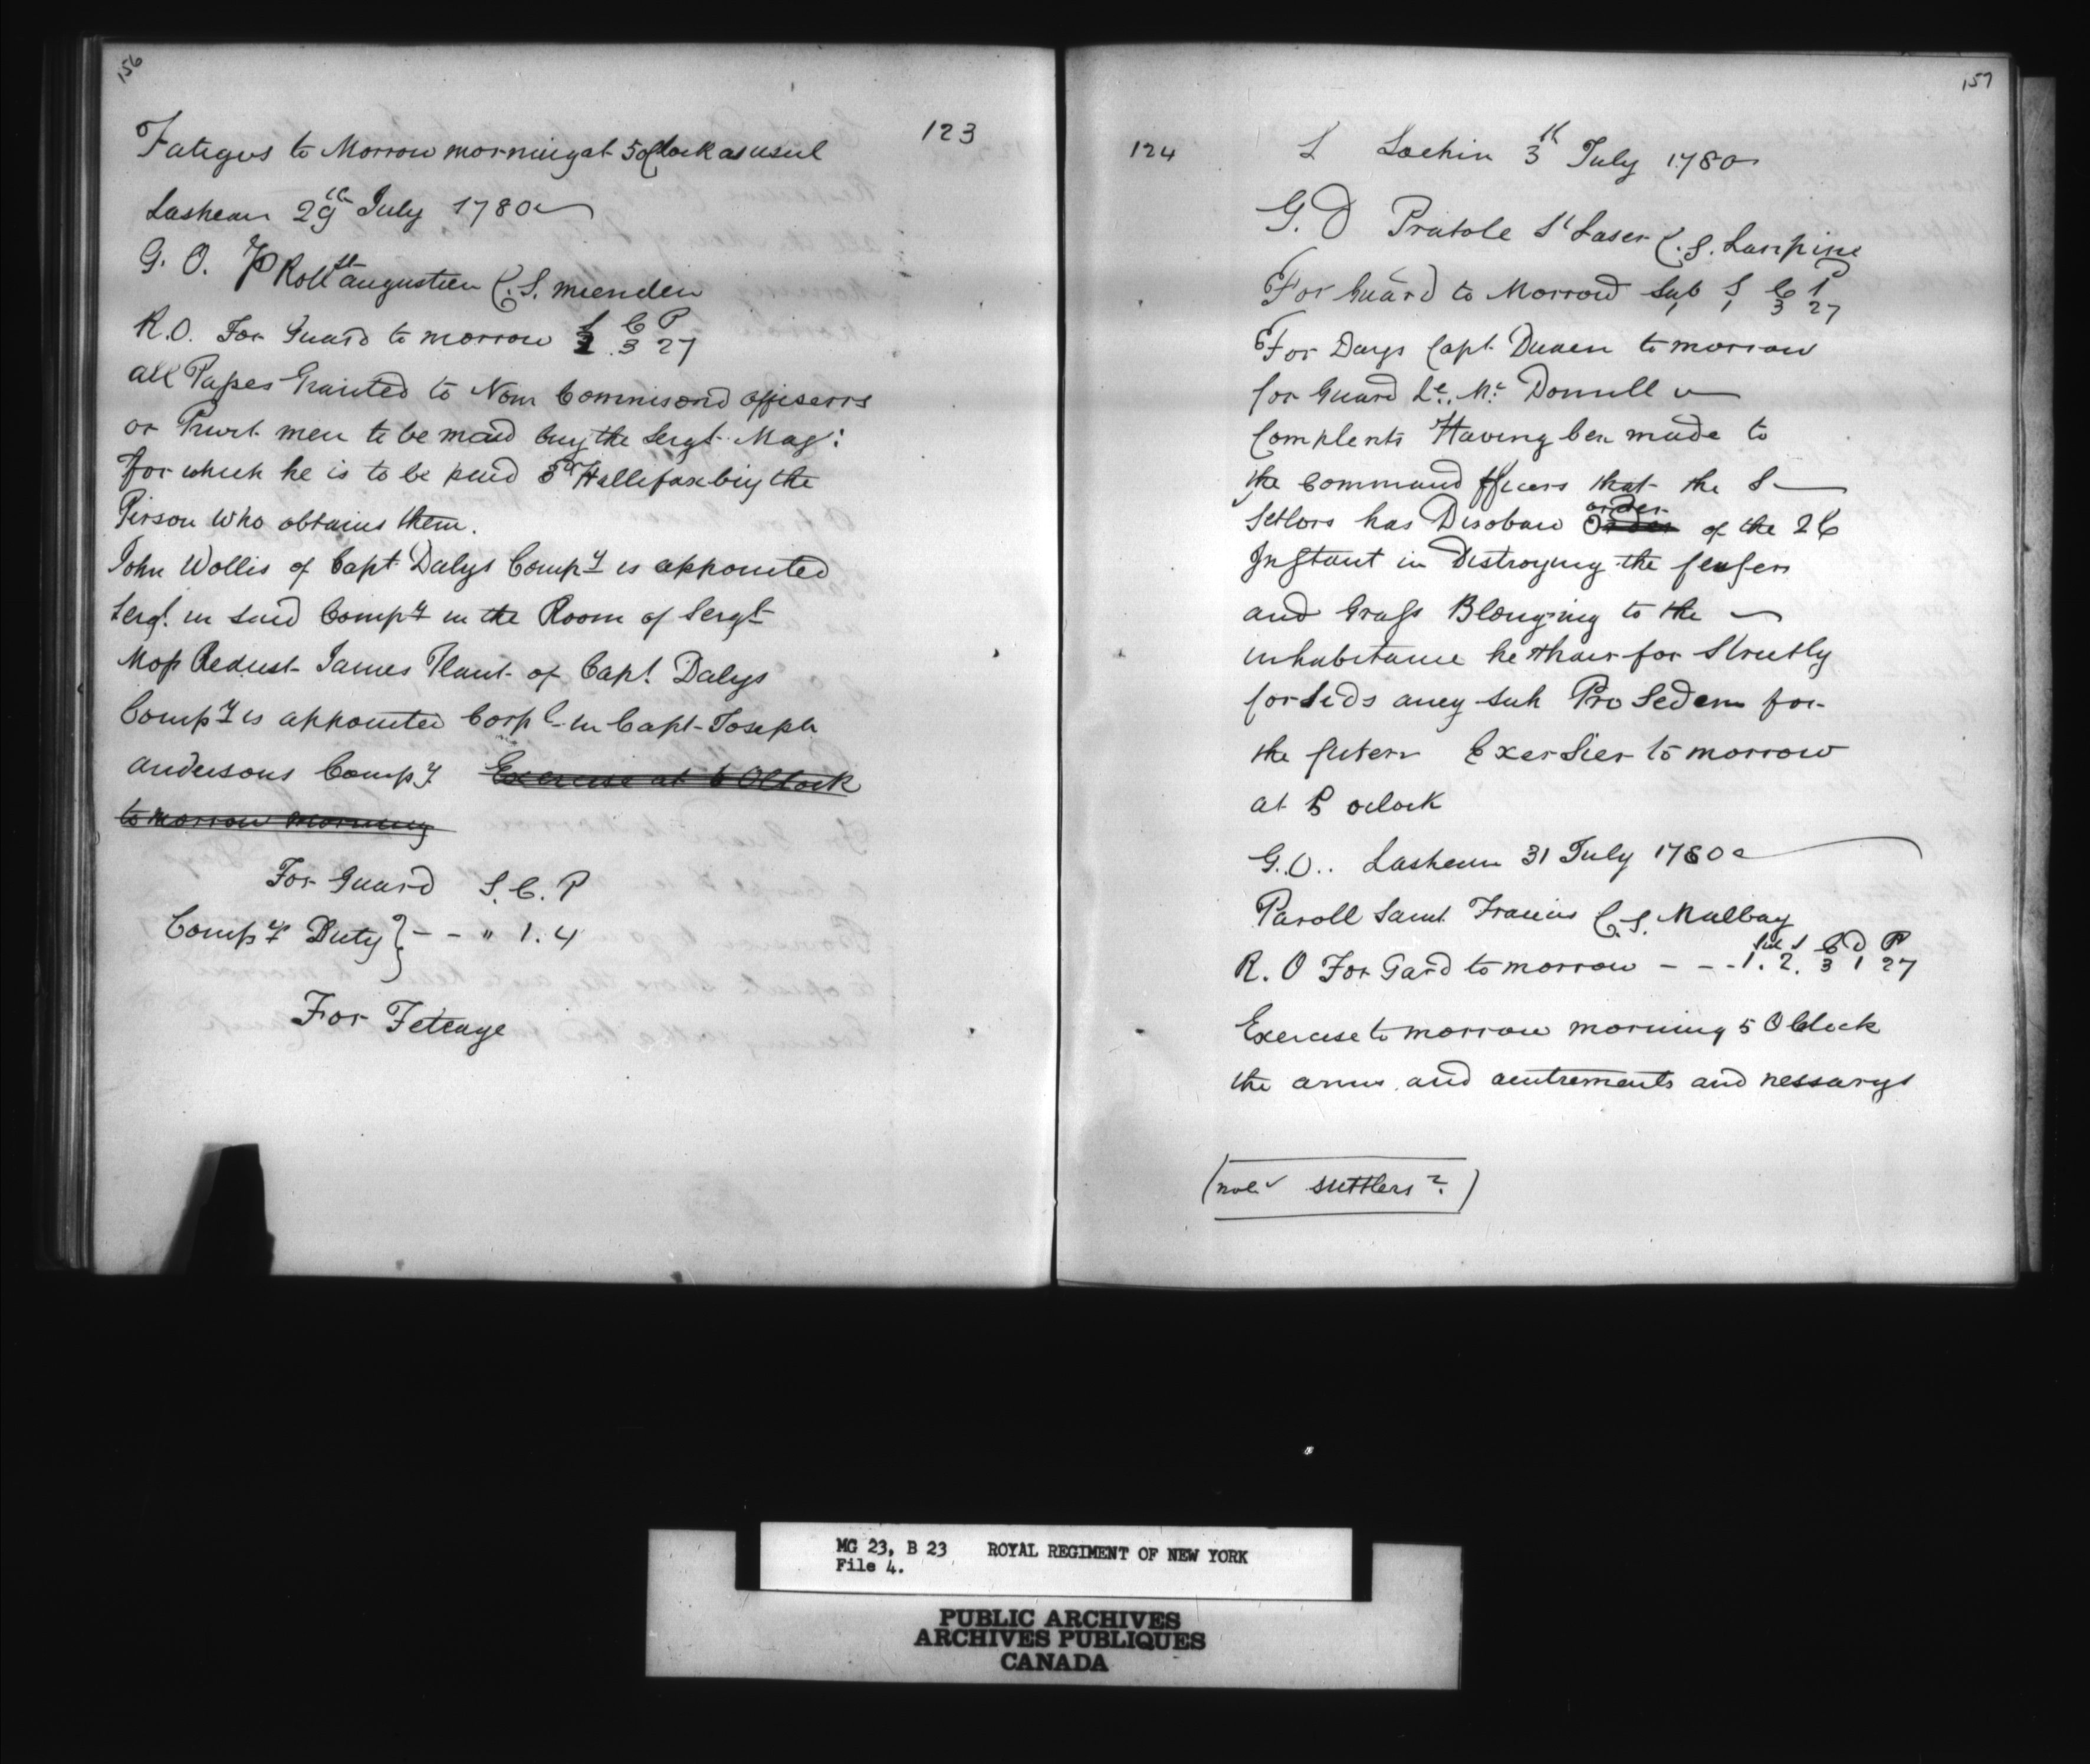 156
123
Fatigus to Morrow morning at 5 oClock as usul
Lashean 29th July 1780
G. O. P Roll St augustien C. S. mienden
R. O. For Guard to morrow S C P
2 3 27
all Passes Granted to Nom Commisond offiserrs
or Privt men to be maid buy the Sergt Maj:
for which he is to be paid 3 Hallifax biy the
Pirson who obtains them.
John Wollis of Capt Dalys Compy is appointed
Sergt. in said Compy in the Room of Sergt
Moss Redust James Plant of Capt. Dalys
Compy is appointed Corpl in Capt Joseph
andersons Compy. Exercise at 6 OClock
to morrow morning
For Guard S. C. P
Compy Duty } - - " 1. 4
For Feteage
157
124
L Sochin 3th July 1780
G. O Pratole St Laser C. S. Lanpine
For Guard to Morrow Sub S C P
1 1 3 27
For Days Capt Duven to morrow
for Guard Le. Mc Donnell
Complents Having ben made to
the Command fficers that the S
Setlors has Disobaw Order order of the 26
Instant in Distroying the fensers
and Grass Blonging to the
inhabitance he thair for Strictly
forbids aney suh Pro Sedem for
the futern Exersier to morrow
at 5 oclock
G. O.. Lashean 31 July 1780
Paroll Saint Francis C. S. Malbay
R. O For Gard to morrow - - - Sub S C D P
1. 2. 3 1 27
Exercise to morrow morning 5 OClock
the arms and acutrements and nessarys
(note suttlers ?)
MG 23, B 23 ROYAL REGIMENT OF NEW YORK
File 4.
PUBLIC ARCHIVES
ARCHIVES PUBLIQUES
CANADA